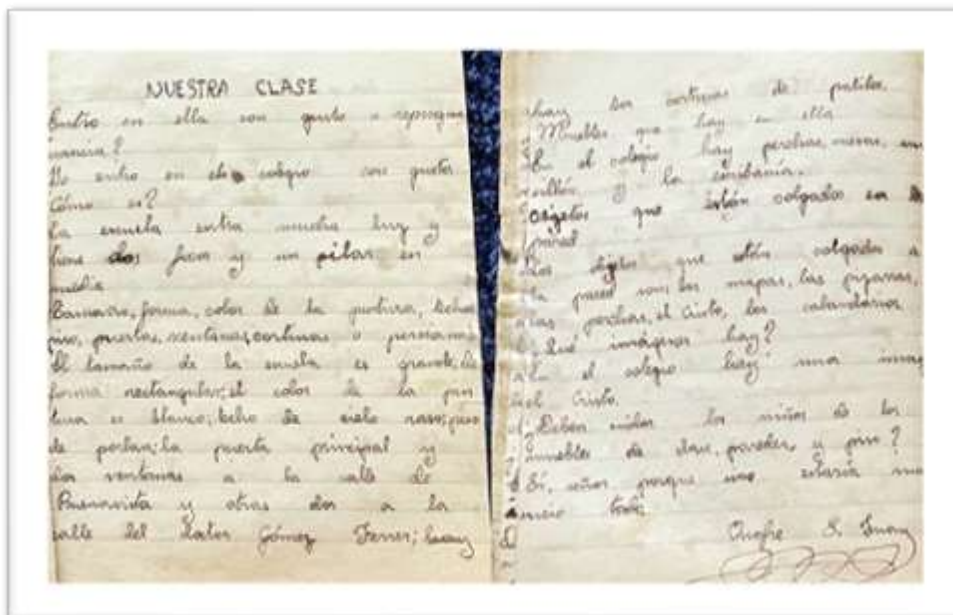 NUESTRA CLASE
Entro en ella con gusto o repugna
nancia?
Yo entro en el colegio con gusto.
Cómo es?
La escuela entra mucha luz y
tiene dos focos y un pilar en
medio
Tamaño, forma, color de la pintura, techo
piso, puertas, ventanas, cortinas o persianas
El tamaño de la escuela es grande; la
forma rectangular; el color de la pin
tura es blanco; techo de cielo raso; piso
de portlan; la puerta principal y
dos ventanas a la calle de
Buenavista y otras dos a la
calle del doctor Gómez Ferrer; hay
hay dos cortinas de
Muebles que hay en ella
En el colegio hay perchas, mesas, un
sillón y la escribanía.
Objetos que están colgados en la
pared
Los objetos que están colgados a
la pared son: los mapas, las pizarras,
las perchas, el Cristo, los calendarios
Qué imágenes hay?
En el colegio hay una imag
del Cristo.
¿Deben cuidar los niños de los
muebles de clase, paredes y piso?
Sí, señor porque estaría
sucio todo.
Onofre S. Juan